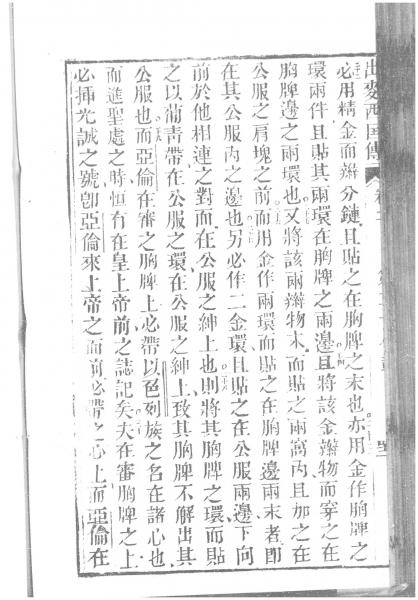 出麥西國傳 卷二
必用精金而辮分鏈且貼之在胸牌之末也亦用金作胸牌之
環兩件且貼其兩環在胸牌之兩邊且將該金辮物而穿之在
胸牌邊之兩環也又將該兩辮物末而貼之兩窩內且加之在
公服之肩塊之前而用金作兩環而貼之在胸牌邊兩末者即
在其公服內之邊也另必作二金環且貼之在公服兩邊下向
前於他相連之對面在公服之紳上也則將其胸牌之環而貼
之以葡青帶在公服之環在公服之紳上致其胸牌不解出其
公服也而亞倫在審之胸牌上必帶以色列族之名在諸心也
而進聖處之時恒有在皇上帝前之誌記矣夫在審胸牌之上
必插光誠之號即亞倫來上帝之面前必帶之心上而亞倫在